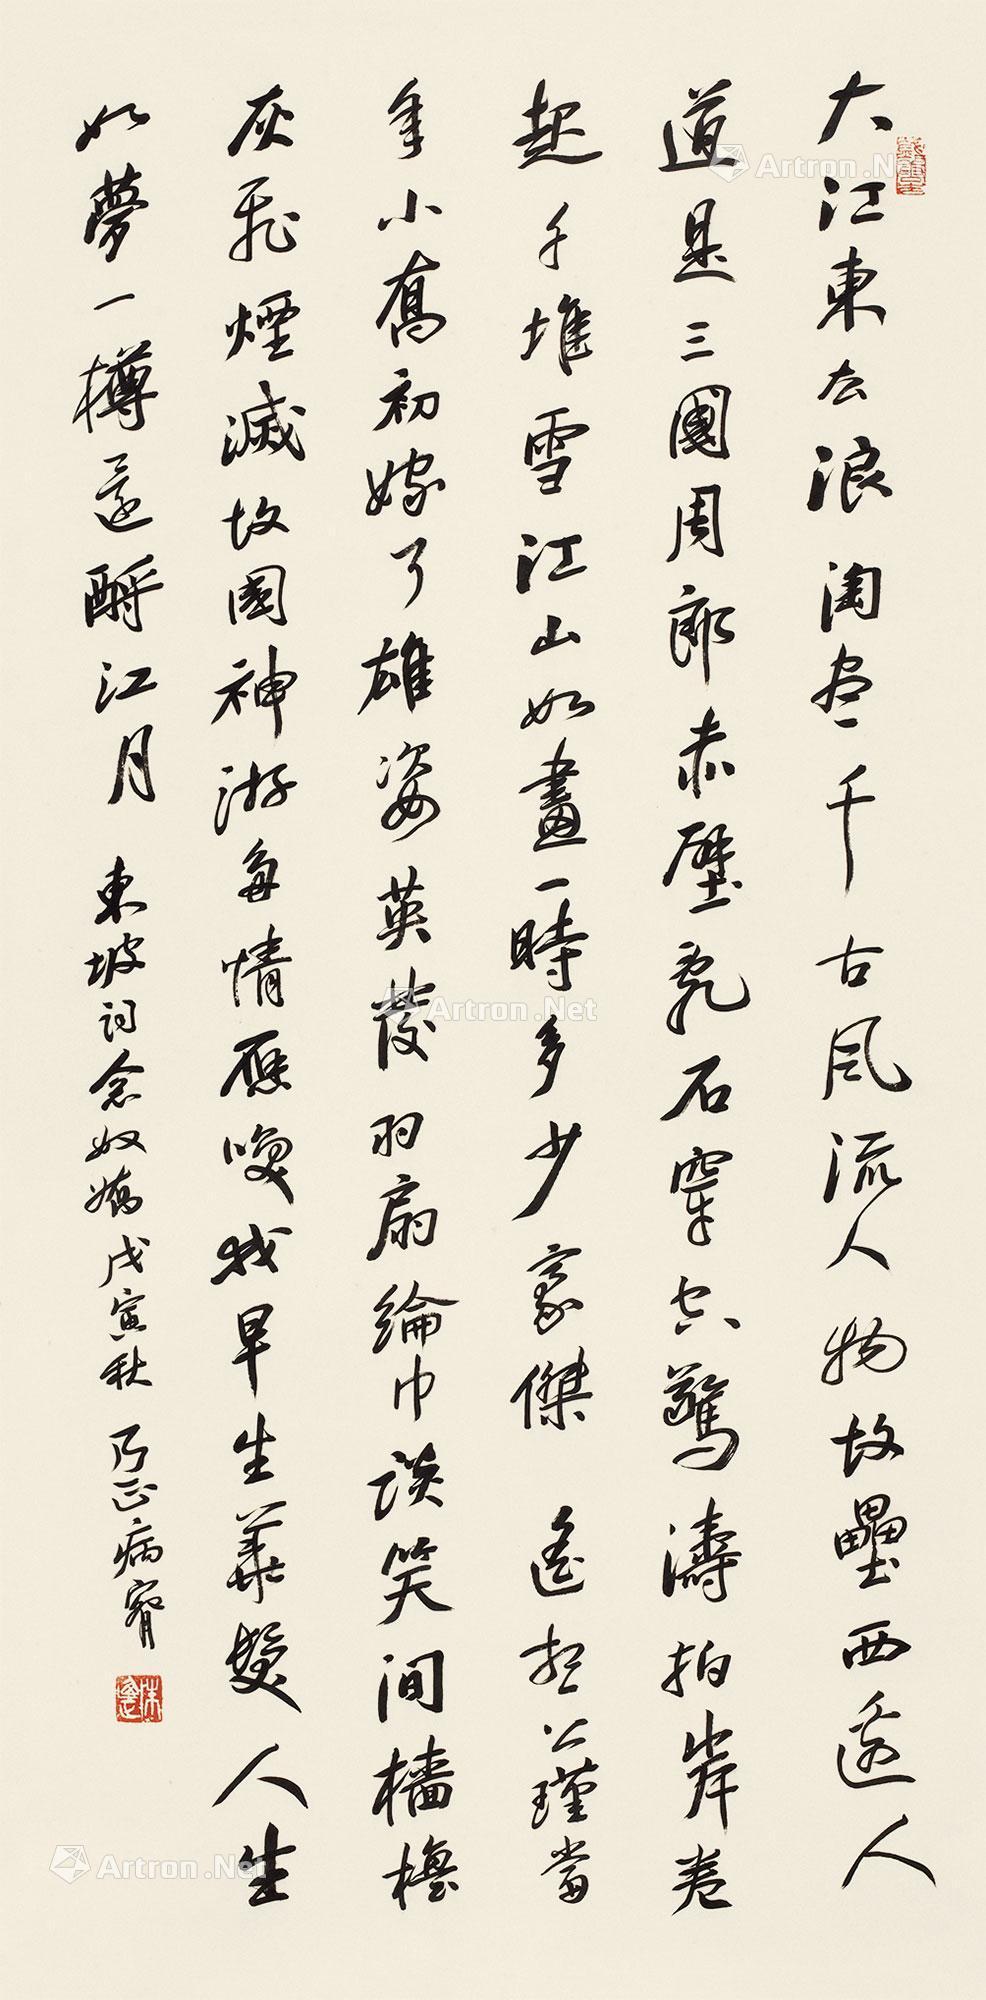 大江東去浪淘盡千古風流人物故壘西邊人
道是三國周郎赤壁亂石穿空驚濤拍岸卷
起千堆雪江山如畫一時多少豪傑 遙想公瑾當
年小喬初嫁了雄姿英發羽扇綸巾談笑間檣櫓
灰飛煙滅故國神游多情應喚我早生華髮人生
如夢一樽還酹江月 東坡詞念奴嬌戊寅秋 乃正病腕
Artron.Net
Artron.Net
Artron.Net